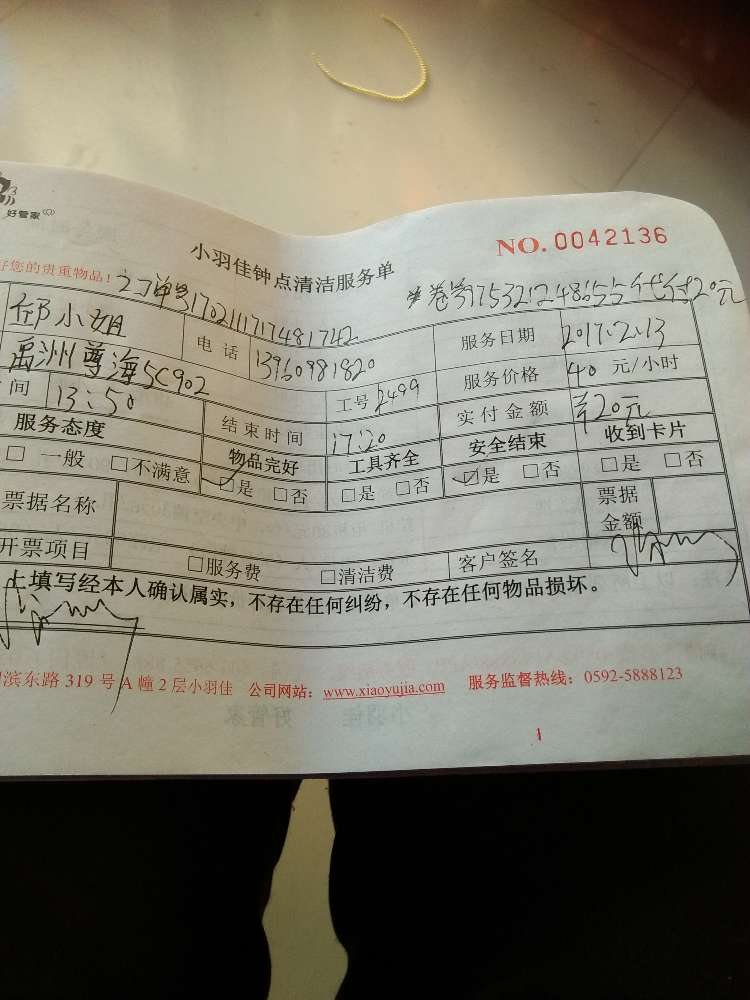 好管家
NO. 0042136
小羽佳钟点清洁服务单
好您的贵重物品！
订单号1702111717481742
券号975321248 代付20元
邱小姐 电话 13960981820 服务日期 2017.2.13
禹洲尊海5C902 工号 2499 服务价格 40 元/小时
时间 13:50 结束时间 17:20 实付金额 20元
服务态度 物品完好 工具齐全 安全结束 收到卡片
□ 一般 □不满意 ☑是 □否 □是 □否 ☑是 □否 □是 □否
票据名称 票据金额
开票项目 □服务费 □清洁费 客户签名
上填写经本人确认属实，不存在任何纠纷，不存在任何物品损坏。
滨东路 319 号 A 幢 2 层小羽佳 公司网站：www.xiaoyujia.com 服务监督热线：0592-5888123
1